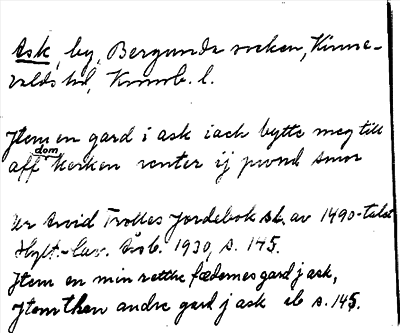 Ask, by, Bergunda socken, Kinne-
valds hd, Kronob. l.
Jtem en gard i ask iach bytte meg till
aff domkerken renter ij pund smör
Ur Arvid Trolles Jordebok sk. av 1490-talet
Hylt.-Cav. Årsb. 1930, s. 145.
Jtem en min rettke fædernes gard j ask,
Jtem then andre gard j ask ib s. 145.